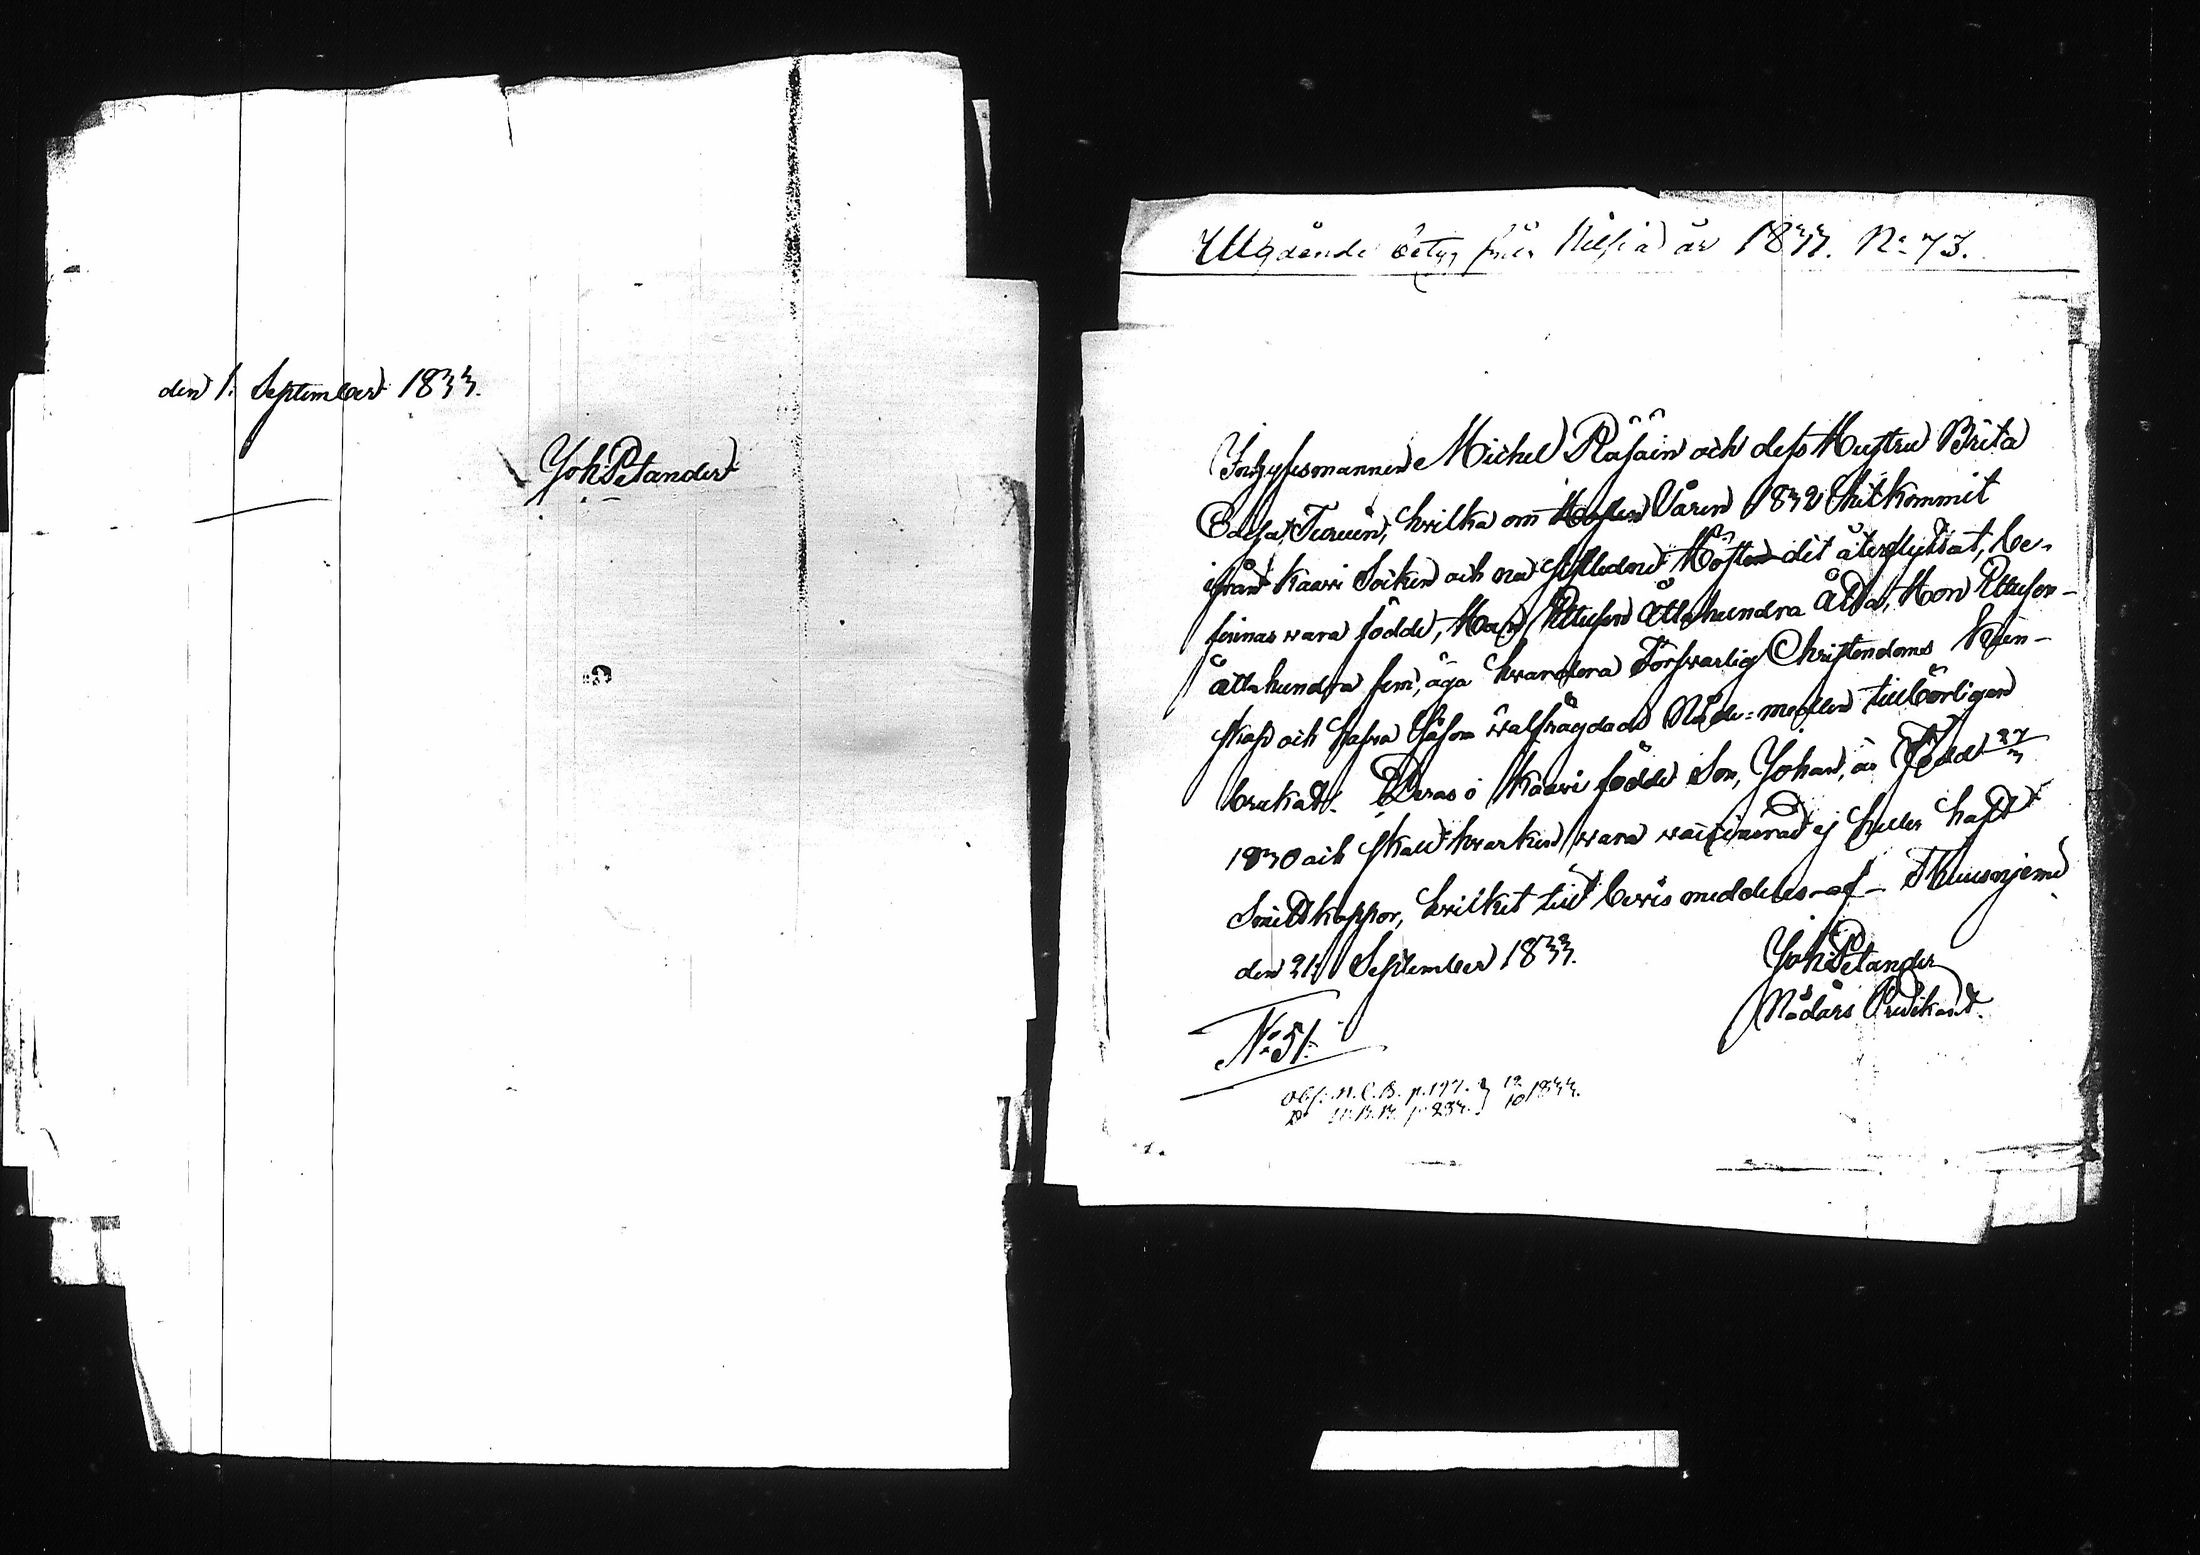 den 1. September 1833.
Joh Petander
Utgående betyg från Nilsiä år 1833. No 73.
Inhysesmannen Michel Räsäin och dess Hustru Brita
Cadsa Turuin, hwilka om Hösten Våren 1832 hitkommit
ifrån Kaavi Socken och nu sistledne Hösten dit återflyttat, be-
finnas wara födde, Han Ettusen Åttahundra Åtta, Hon Ettusen-
åttahundra fem, äga hwardera Försvarlig Christendoms Kun-
skap och hafwa såsom wälfrägdade Nåde-medlen tillbörligen
brukat. Deras i Kaavi födde Son, Johan, är Född 27/3
1830 och skall hwarken wara waccinerad ej heller haft
Småttkoppor, hwilket till bewis meddelas af Thuusnjemi
den 21. September 1833.
Joh Petander
Nådårs Predikant.
No 51.
Obs. N. C. B. p. 197. } 12/10 1833.
D:o p. 233.